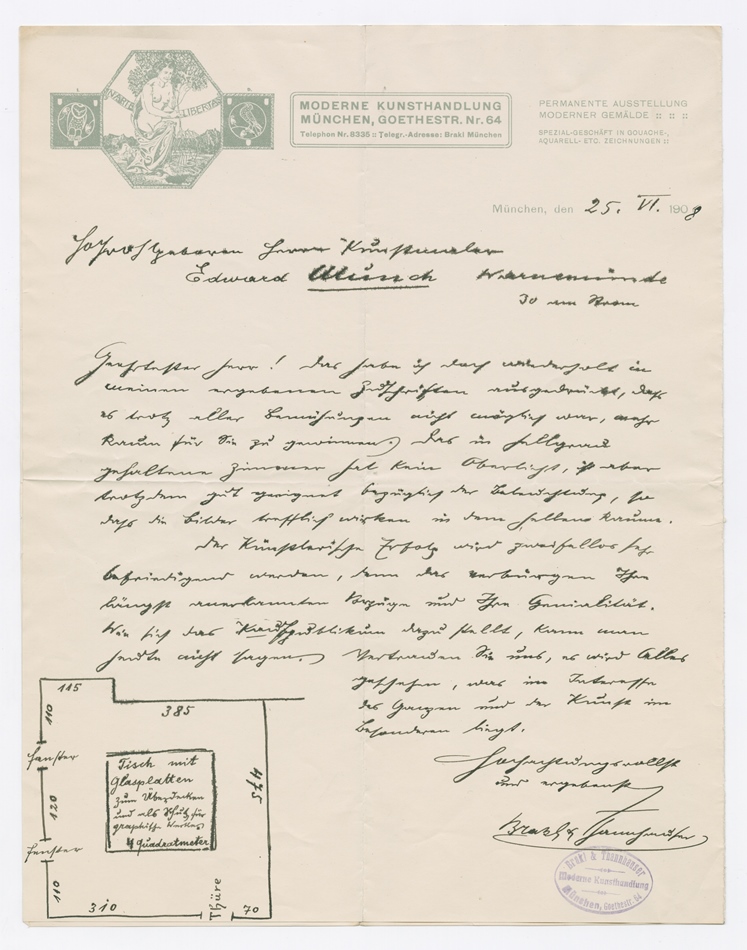 IN ARTE LIBERTAS
MODERNE KUNSTHANDLUNG
MÜNCHEN, GOETHESTR. Nr. 64
Telephon Nr. 8335 :: Telegr.-Adresse: Brakl München
PERMANENTE AUSSTELLUNG
MODERNER GEMÄLDE :: :: ::
SPEZIAL-GESCHÄFT IN GOUACHE-,
AQUARELL- ETC. ZEICHNUNGEN ::
München, den 25. VI. 1908
Hochwohlgeboren Herrn Kunstmaler
Edward Munch Warnemünde
30 am Strom
Geehrtester Herr! Das habe ich doch wiederholt in
meinen ergebenen Zuschriften ausgedrückt, daß
es trotz aller Bemühungen nicht möglich war, mehr
Raum für Sie zu gewinnen. Das in hellgrau
gehaltene Zimmer hat kein Oberlicht, ist aber
trotzdem gut geeignet bezüglich der Beleuchtung, so
daß die Bilder trefflich wirken in dem hellen Raume.
Der Künstlerische Erfolg wird zweifellos sehr
befriedigend werden, denn das verbürgen Ihre
längst anerkannten Vorzüge und Ihre Genialität.
Wie sich das Kaufpublikum dazu stellt, kann man
heute nicht sagen. Vertrauen Sie uns, es wird Alles
geschehen, was im Interesse
des Ganzen und der Kunst im
Besonderen liegt.
Hochachtungsvollst
und ergebenst
Brakl & Thannhauser
115
385
110
Fenster
120
Fenster
110
310
Thüre
70
475
Tisch mit
Glasplatten
zum Überdecken
und als Schutz für
graphische Werke
4 Quadratmeter
Brakl & Thannhauser
Moderne Kunsthandlung
München, Goethestr. 64